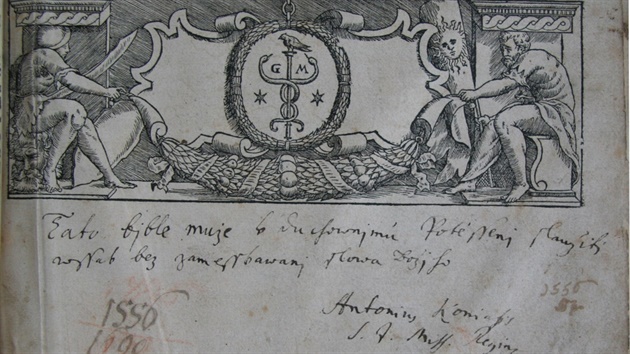 G M
Tato bjble muże k duchownjmu Potěssenj slaužiti
wssak bez zamesskawanj slowa Božjho
1556
Antonius Konias
S. J. Miss. Regius
1556